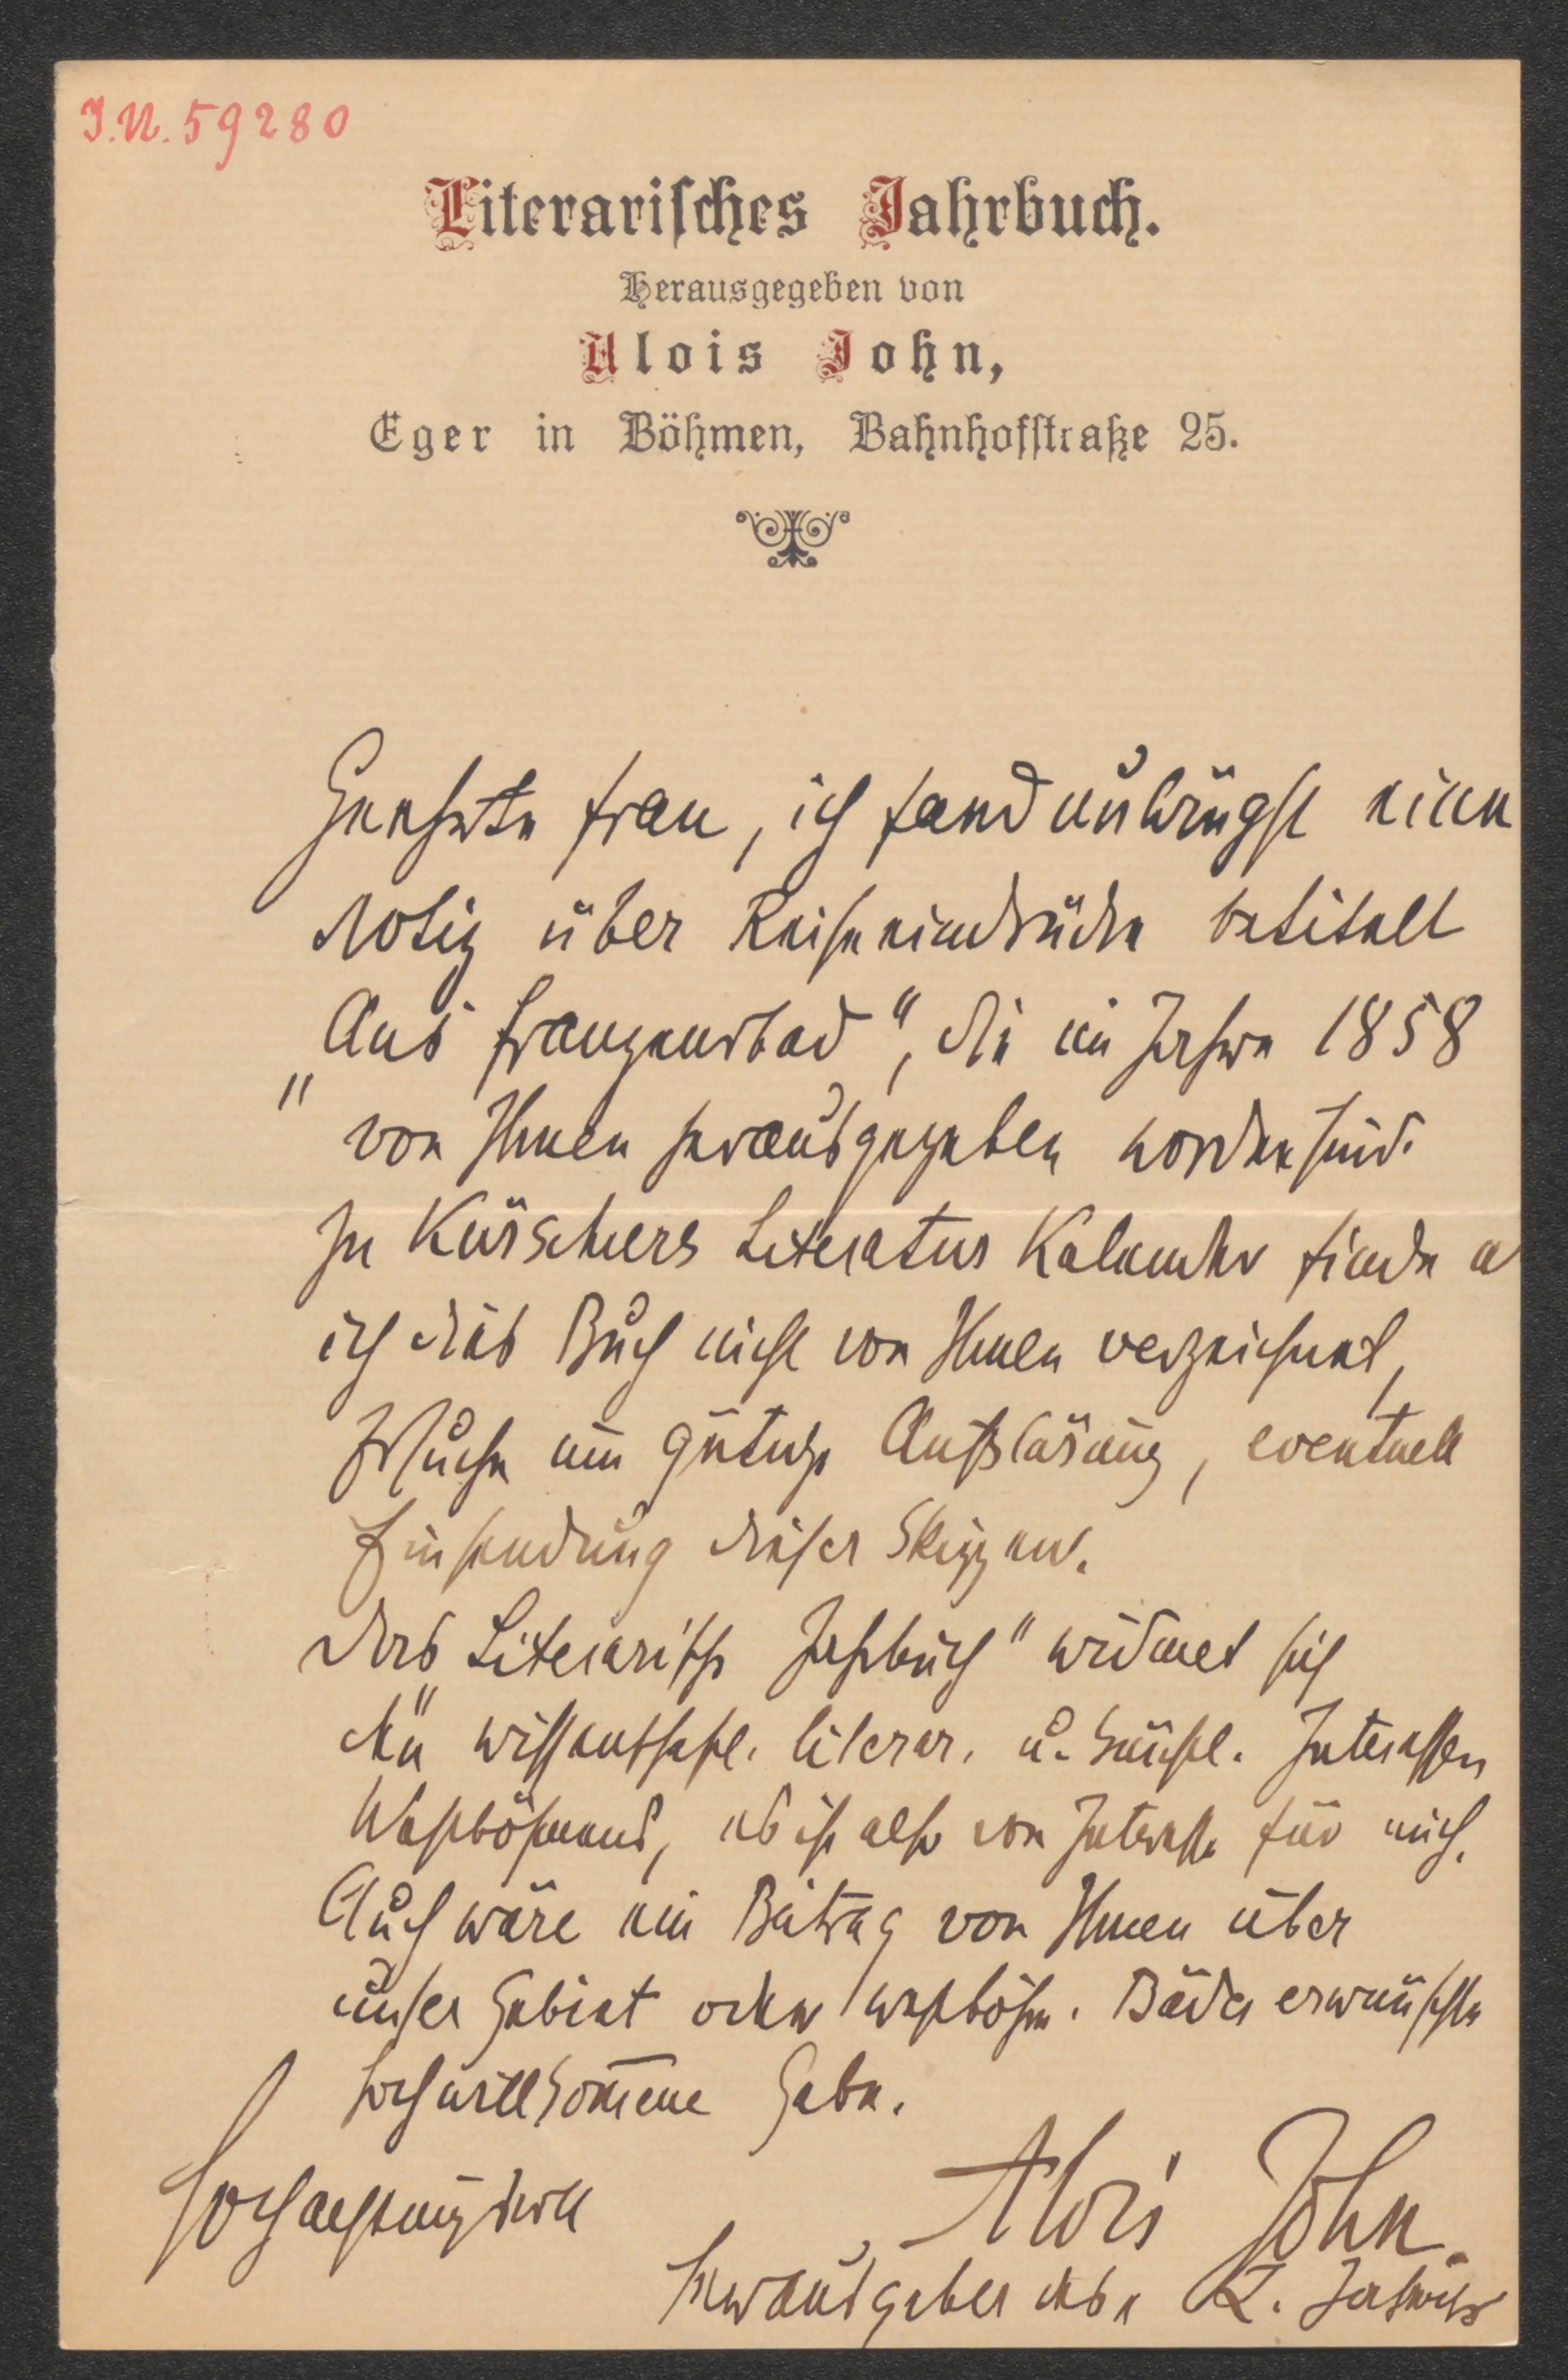 I.N. 59280
Literarisches Jahrbuch.
Herausgegeben von
Alois John,
Eger in Böhmen, Bahnhofstraße 25.
Geehrte Frau, ich fand unlängst eine
Notiz über Reiseeindrücke betitelt
„Aus Franzensbad“, die im Jahre 1858
von Ihnen herausgegeben worden sind.
In Kürschners Literatur Kalender finde
ich dies Buch nicht von Ihnen verzeichnet,
Ersuche um gütige Aufklärung, eventuell
Einsendung dieser Skizzen.
Das „Literarische Jahrbuch“ widmet sich
den wissenschaftl. literar. u. künstl. Interessen
Westböhmens, es ist also von Interesse für mich.
Auch wäre ein Beitrag von Ihnen über
unser Gebiet oder westböhm. Bäder erwünschte
hochwillkommene Gabe.
Hochachtungsvoll
Alois John.
Herausgeber des L. Jahrbuchs